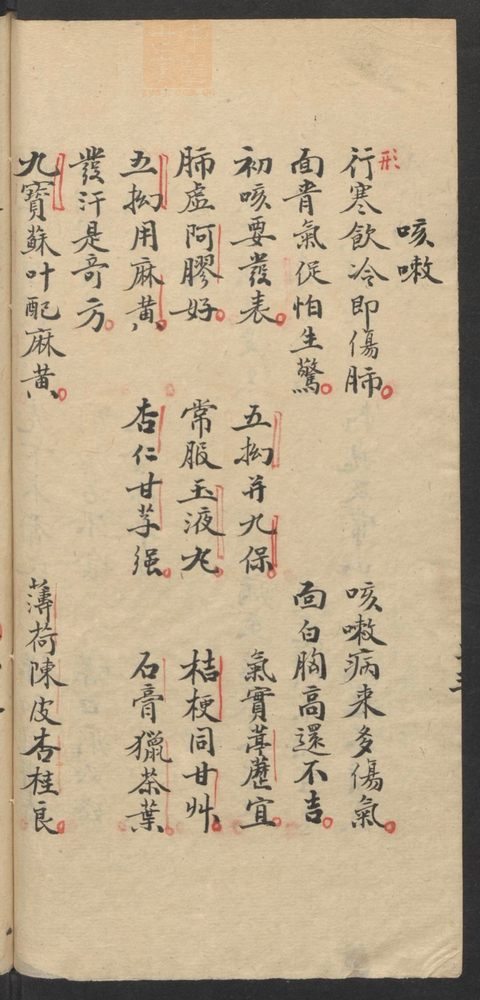 咳嗽
形
行寒飲冷即傷肺。咳嗽病来多傷氣。
面青氣促怕生驚。面白胸高還不吉。
初咳要發表。五拗并九保。氣實葶藶宜。
肺虛阿膠好。常服玉液丸。桔梗同甘艸。
五拗用麻黃。杏仁甘草强。石膏獵茶葉
發汗是奇方。
九寶蘇叶配麻黃。薄荷陳皮杏桂良。